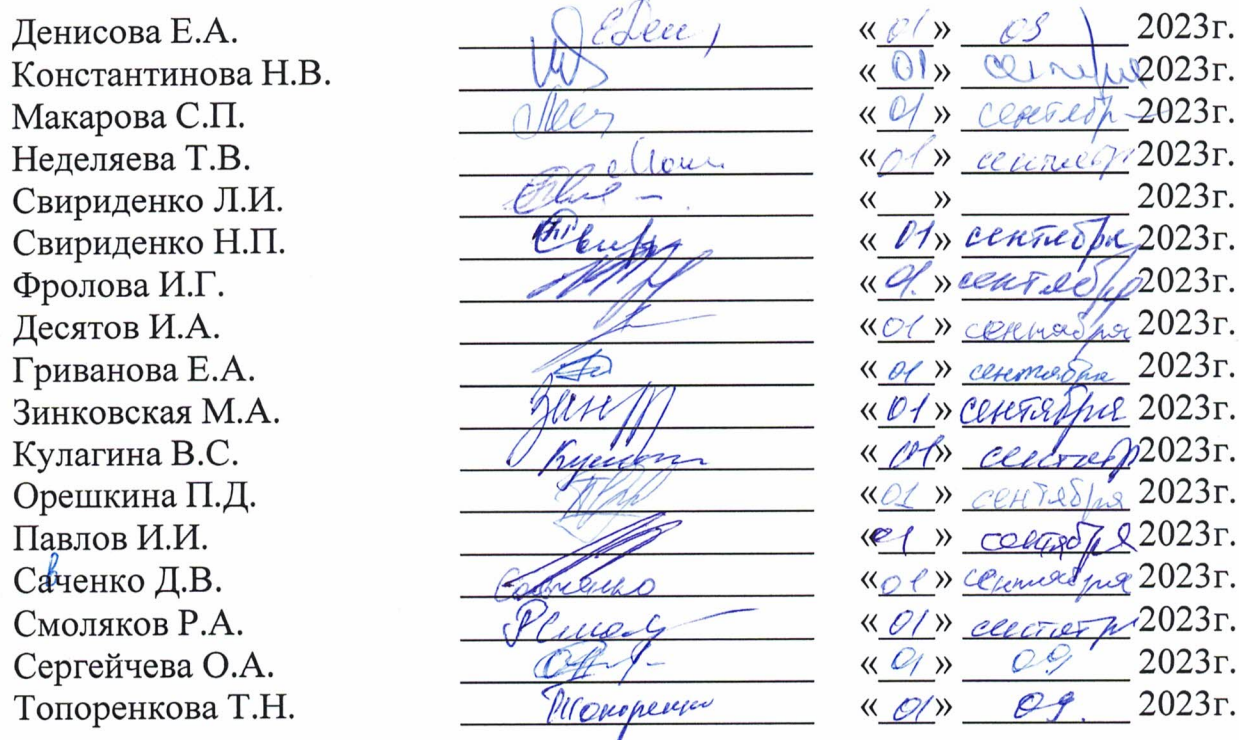 Денисова Е.А. «01» 09 2023г.
Константинова Н.В. «01» сентября 2023г.
Макарова С.П. «01» сентябр 2023г.
Неделяева Т.В. «01» сентябр 2023г.
Свириденко Л.И. « » 2023г.
Свириденко Н.П. «01» сентября 2023г.
Фролова И.Г. «01.» сентября 2023г.
Десятов И.А. «01» сентября 2023г.
Гриванова Е.А. «01» сентября 2023г.
Зинковская М.А. «01» сентября 2023г.
Кулагина В.С. «01» сентябр 2023г.
Орешкина П.Д. «01» сентября 2023г.
Павлов И.И. «01» сентября 2023г.
Савченко Д.В. «01» сентября 2023г.
Смоляков Р.А. «01» сентябр 2023г.
Сергейчева О.А. «01» 09 2023г.
Топоренкова Т.Н. «01» 09. 2023г.